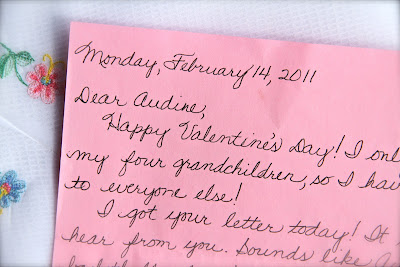 Monday, February 14, 2011
Dear Audine,
Happy Valentine's Day! I onl
my four grandchildren, so I hav
to everyone else!
I got your letter today! It
hear from you. Sounds like